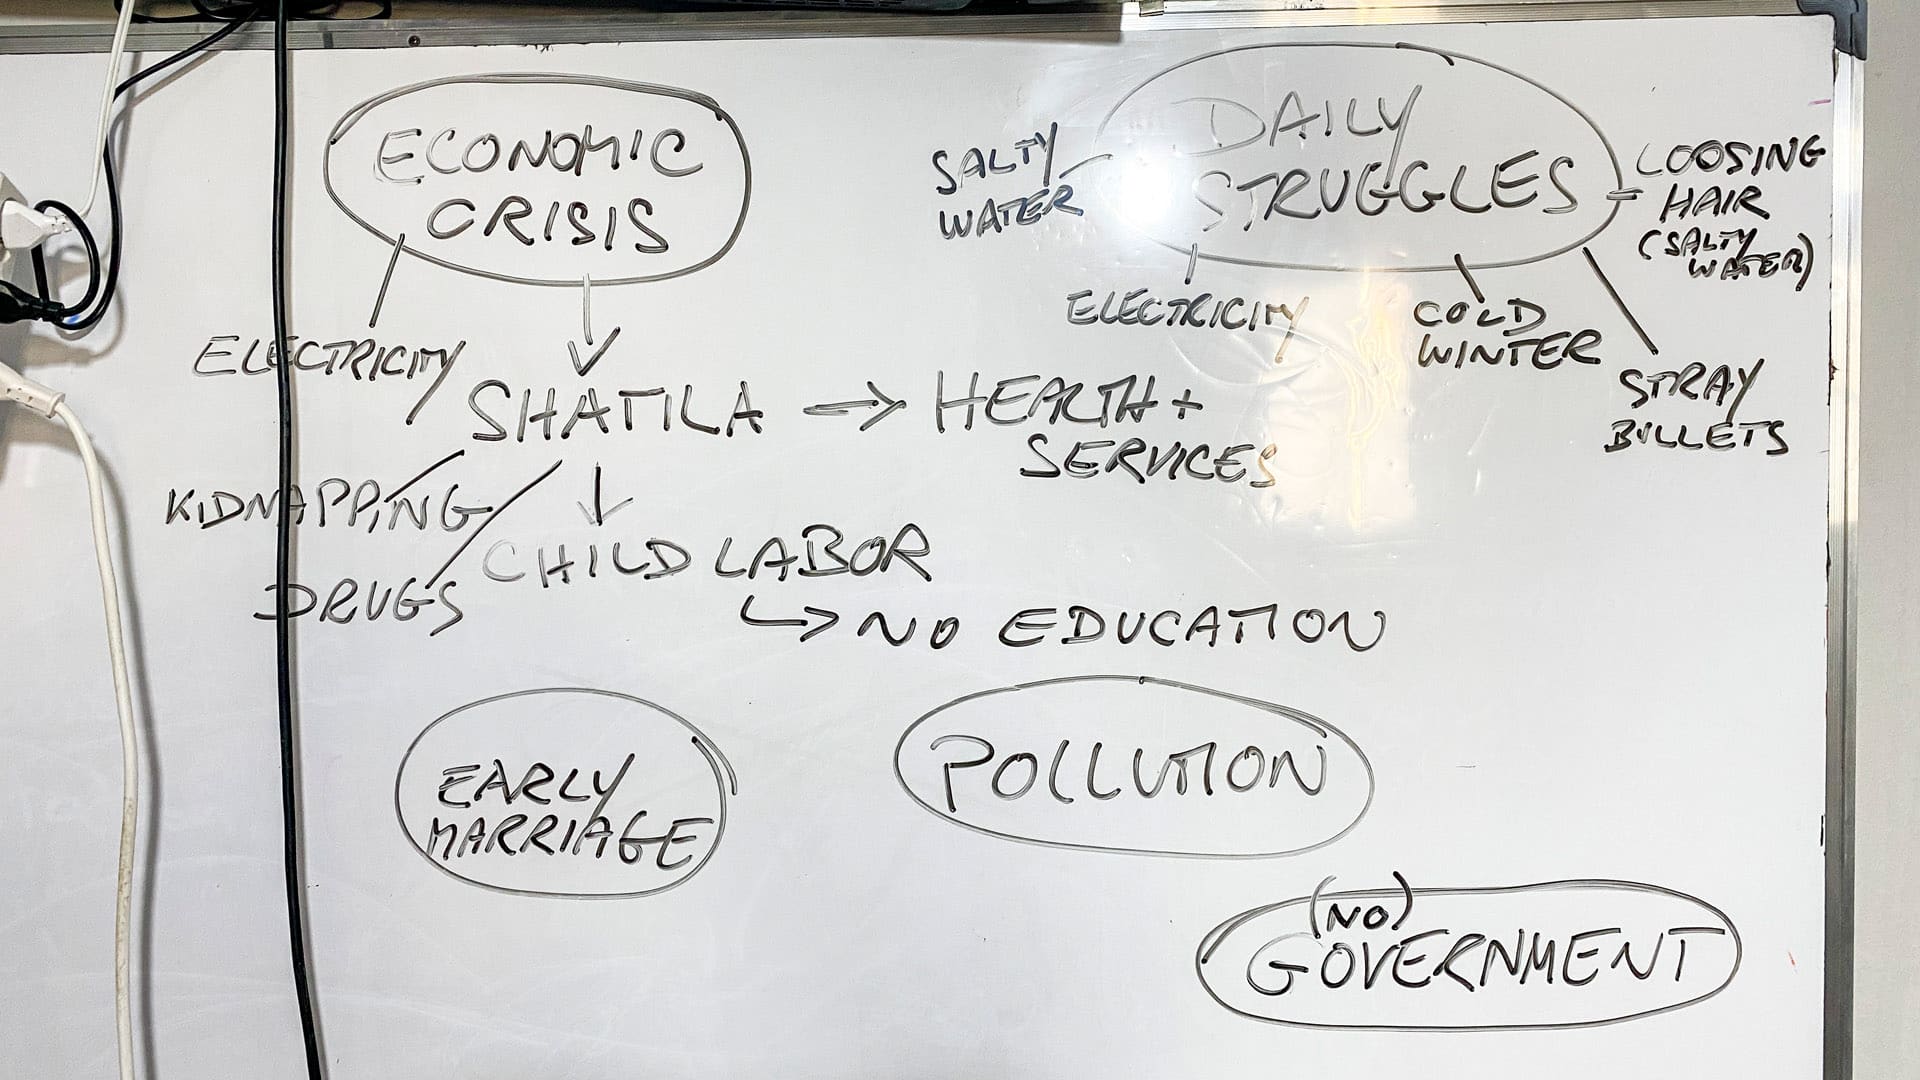 ECONOMIC
CRISIS
ELECTRICITY
SHATILA → HEALTH +
SERVICES
KIDNAPPING
DRUGS
CHILD LABOR
↳ NO EDUCATION
DAILY
STRUGGLES
SALTY
WATER
ELECTRICITY
COLD
WINTER
STRAY
BULLETS
LOOSING
HAIR
(SALTY
WATER)
EARLY
MARRIAGE
POLLUTION
(NO)
GOVERNMENT